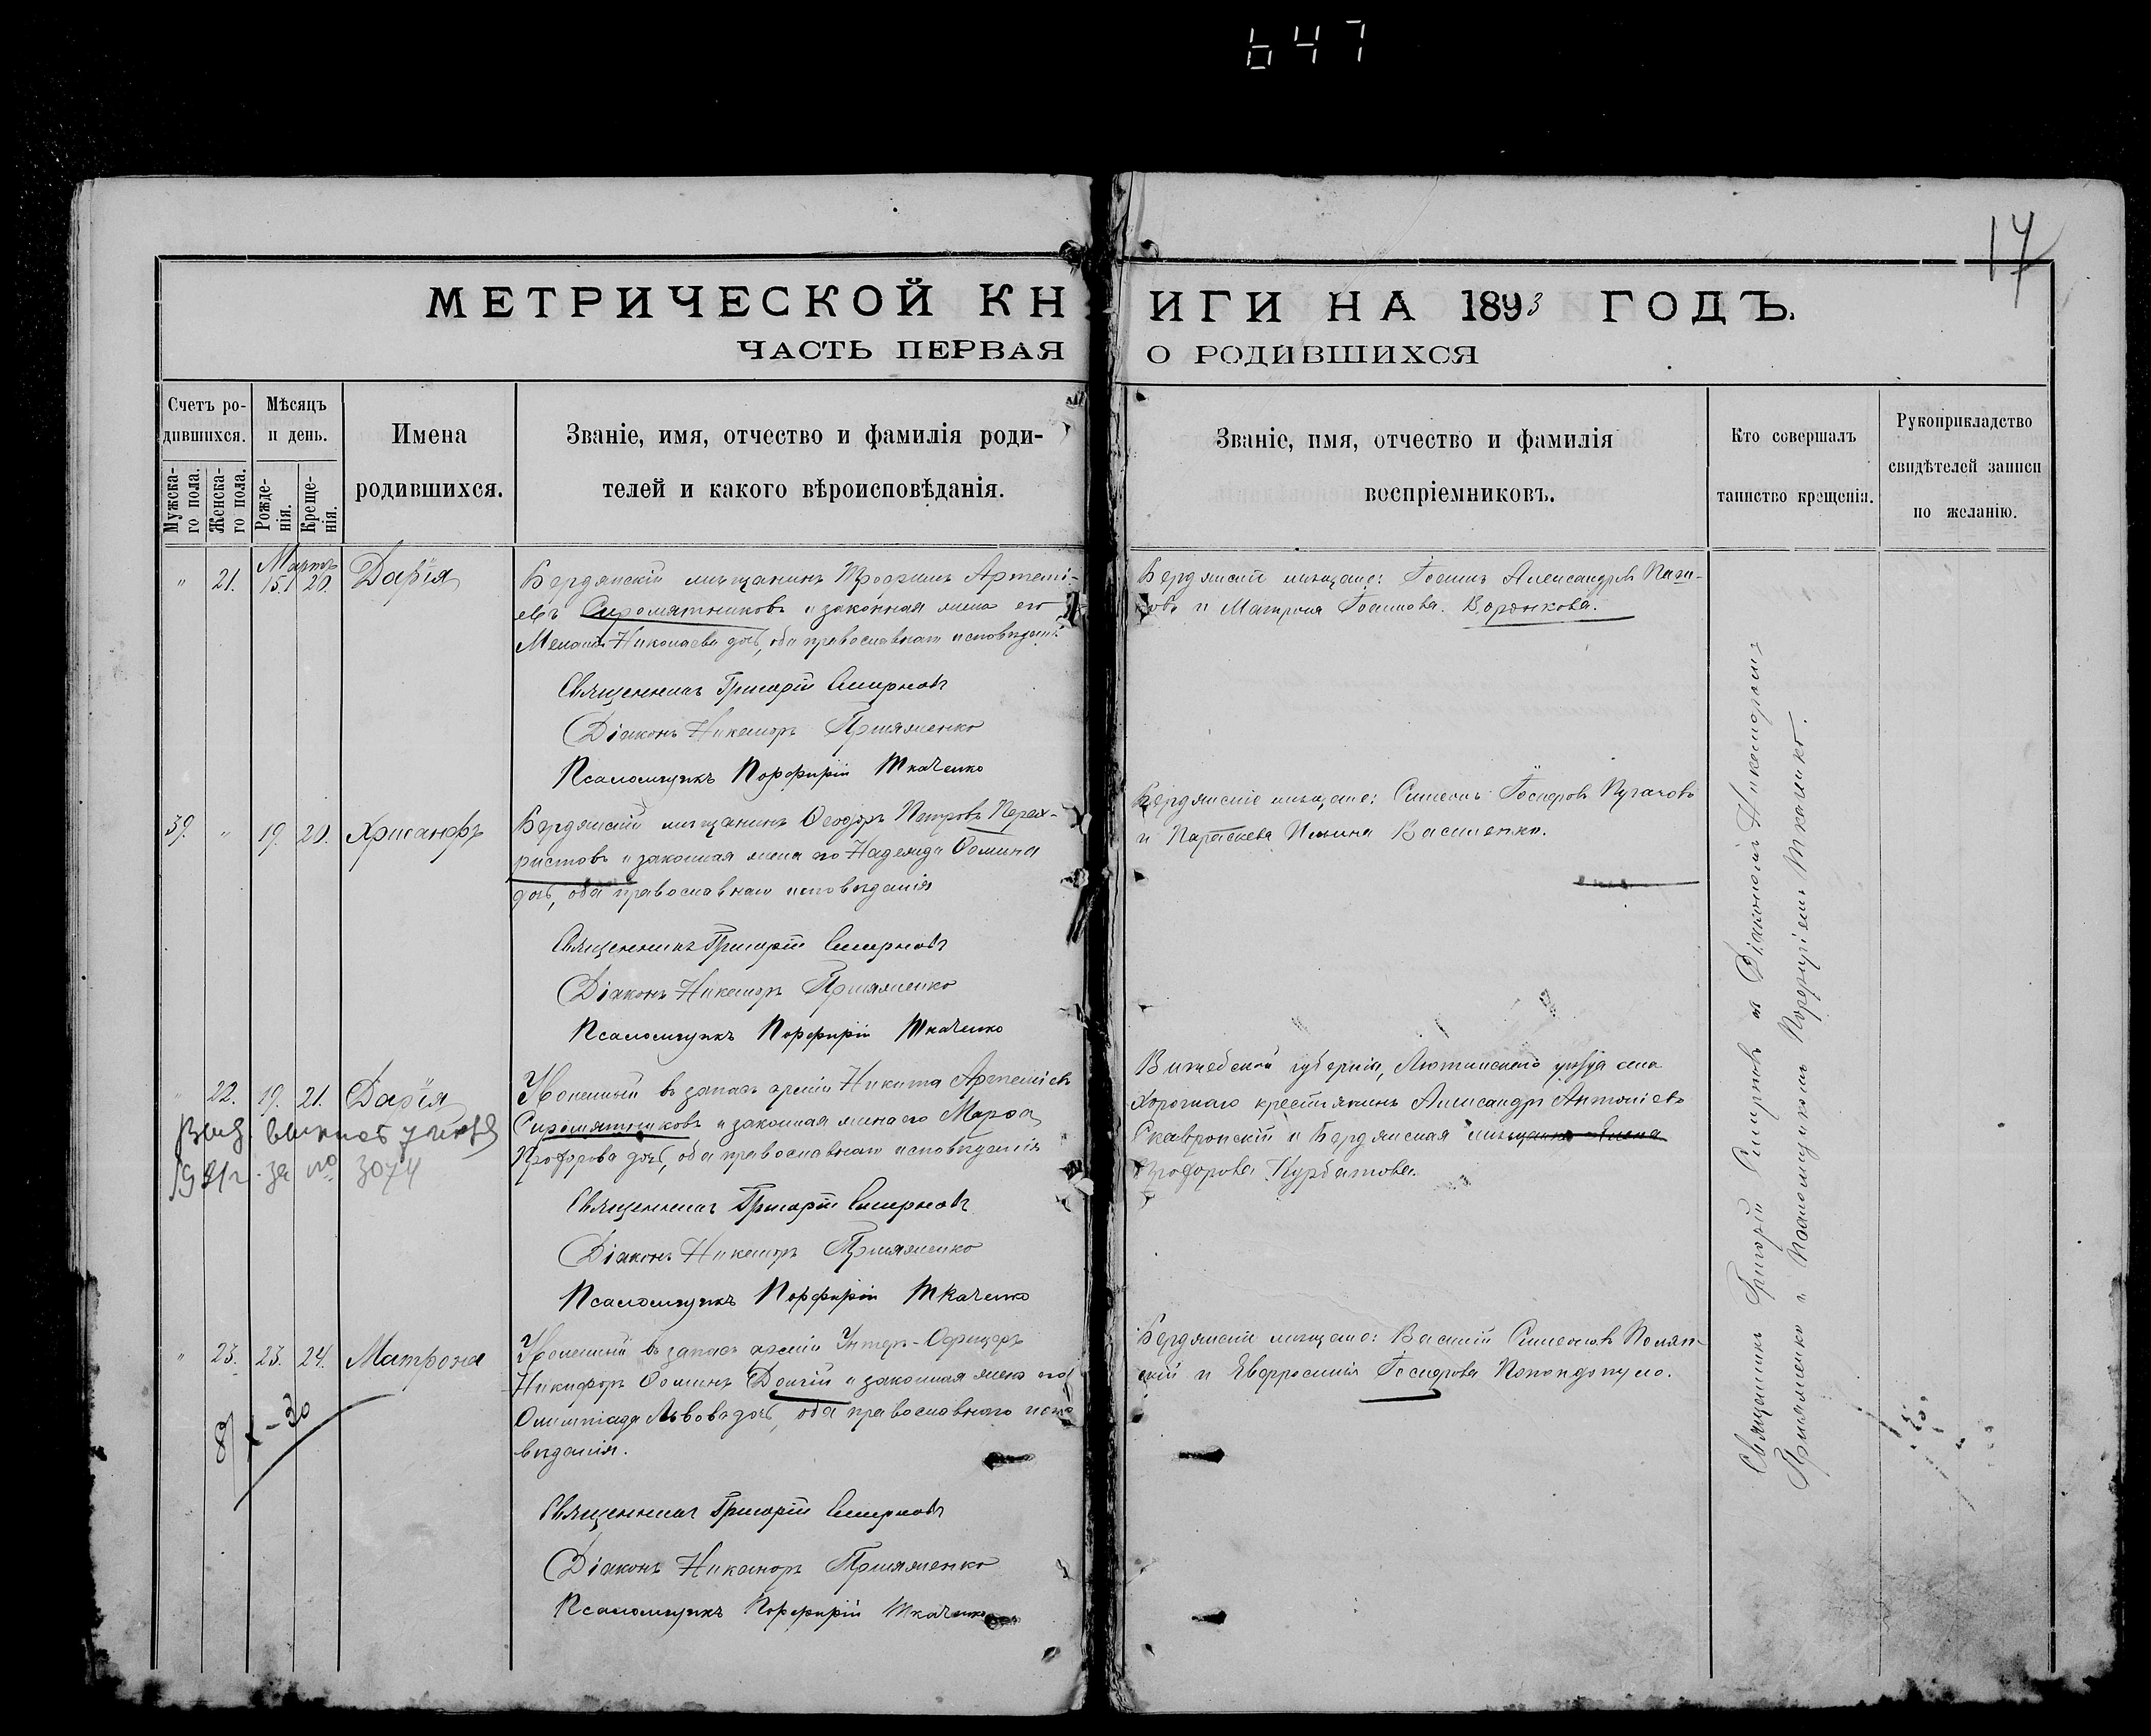 647
17
МЕТРИЧЕСКОЙ КНИГИ НА 1893 ГОДЪ.
ЧАСТЬ ПЕРВАЯ О РОДИВШИХСЯ
Счетъ родившихся.
Мужскаго пола.
Женскаго пола.
Мѣсяцъ и день.
Рожденія.
Крещенія.
Имена родившихся.
Званіе, имя, отчество и фамилія роди-
телей и какого вѣроисповѣданія.
Званіе, имя, отчество и фамилія
воспріемниковъ.
Кто совершалъ
таинство крещенія.
Рукоприкладство
свидѣтелей записи
по желанію.
Мартъ
" 21. 15. 20. Дарія
Бердянскій мѣщанинъ Трофимъ Артемі-
евъ Сыромятниковъ и законная жена его
Меланія Николаева дочь, оба православнаго исповѣданія
Священникъ Григорій Смирновъ
Діаконъ Никаноръ Прияменко
Псаломщикъ Порфирій Ткаченко
Бердянскіе мѣщане: Іоаннъ Александровъ
и Матрона Іоаннова Воронкова.
39. " 19. 20. Хрисанфъ
Бердянскій мѣщанинъ Ѳеодоръ Петровъ Перех-
ристовъ и законная жена его Надежда Ѳомина
дочь, оба православнаго исповѣданія
Священникъ Григорій Смирновъ
Діаконъ Никаноръ Прияменко
Псаломщикъ Порфирій Ткаченко
Бердянскіе мѣщане: Симеонъ Іосифовъ Пугачовъ
и Параскева Ильина Василенко.
" 22. 19. 21. Дарія
Уволенный въ запасъ арміи Никита Артеміевъ
Сыромятниковъ и законная жена его Марѳа
дочь, оба православнаго исповѣданія
Священникъ Григорій Смирновъ
Діаконъ Никаноръ Прияменко
Псаломщикъ Порфирій Ткаченко
Витебской губерніи, Лютинскаго уѣзда села
крестьянинъ Александръ Антоніевъ
Скавронскій и Бердянская мѣщанка Елена
Курбатова.
за № 3074
" 23. 23. 24. Матрона
Уволенный въ запасъ арміи Унтеръ-Офицеръ
Никифоръ Ѳоминъ Долгій и законная жена его
Олимпіада Львова дочь, оба православнаго испо-
вѣданія.
Священникъ Григорій Смирновъ
Діаконъ Никаноръ Прияменко
Псаломщикъ Порфирій Ткаченко
Бердянскіе мѣщане: Василій Симеоновъ Полян-
скій и Евфросинія Іосифова Попандопуло.
Священникъ Григорій Смирновъ съ Діакономъ Никаноромъ
Прияменко и Псаломщикомъ Порфиріемъ Ткаченко.